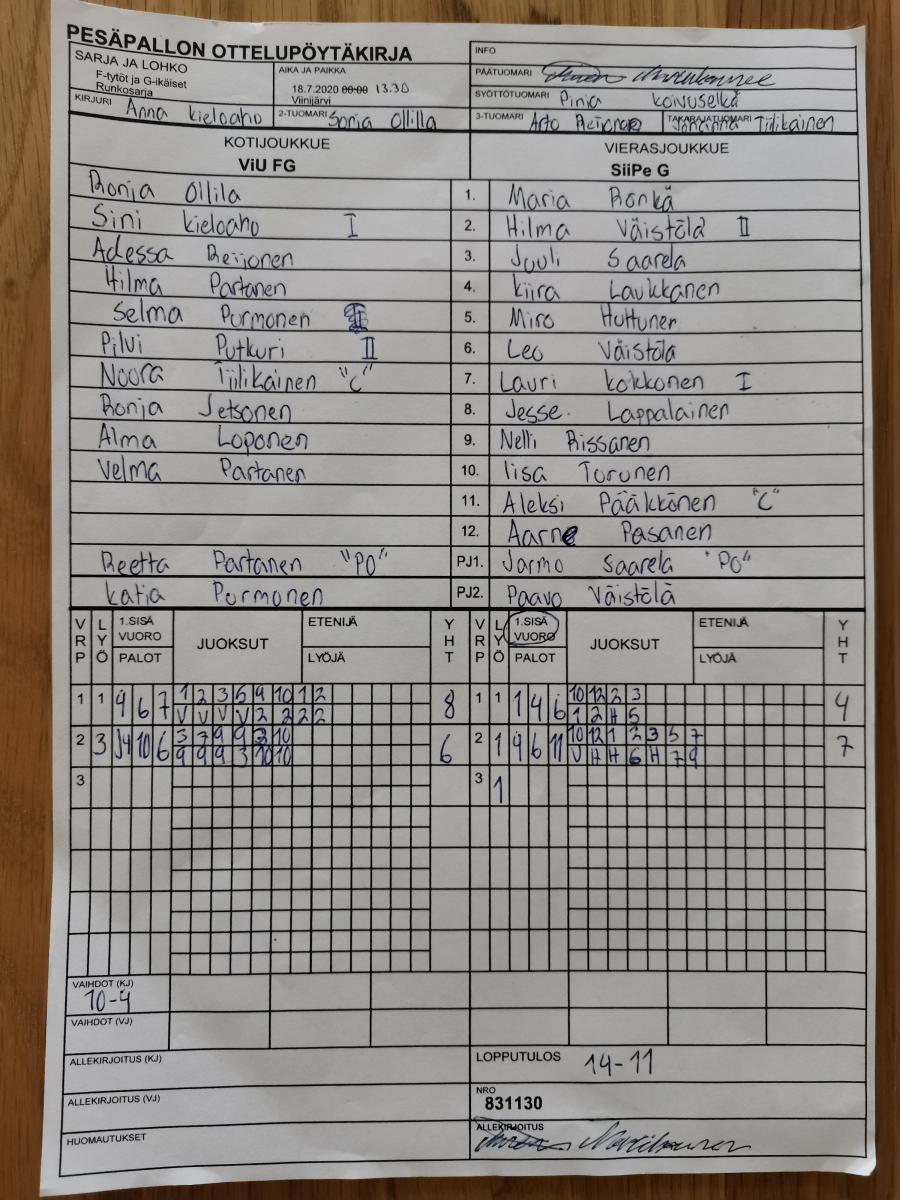 PESÄPALLON OTTELUPÖYTÄKIRJA
INFO
SARJA JA LOHKO
F-tytöt ja G-ikäiset
Runkosarja
AIKA JA PAIKKA
18.7.2020 00:00 13.30
Viinijärvi
PÄÄTUOMARI
SYÖTTÖTUOMARI Pinja Koivuselkä
KIRJURI Anna Kieloaho
2-TUOMARI Sonja Ollila
3-TUOMARI Arto Reijonen
TAKARAJATUOMARI Johanna Tiilikainen
KOTIJOUKKUE VIERASJOUKKUE
ViU FG SiiPe G
Ronja Ollila 1. Maria Ronkä
Sini Kieloaho I 2. Hilma Väistölä II
Adessa Reijonen 3. Juuli Saarela
Hilma Partanen 4. Kiira Laukkanen
Selma Purmonen 5. Miro Huttunen
Pilvi Putkuri II 6. Leo Väistölä
Noora Tiilikainen "C" 7. Lauri Kokkonen I
Ronja Jetsonen 8. Jesse Lappalainen
Alma Loponen 9. Nelli Rissanen
Velma Partanen 10. Iisa Turunen
11. Aleksi Pääkkönen "C"
12. Aarne Pasanen
Reetta Partanen "PO" PJ1. Jarmo Saarela "PO"
Katja Purmonen PJ2. Paavo Väistölä
VRP LYÖ 1.SISÄ VUORO PALOT JUOKSUT ETENIJÄ LYÖJÄ YHT VRP LYÖ 1.SISÄ VUORO PALOT JUOKSUT ETENIJÄ LYÖJÄ YHT
1 1 9 6 7 1 2 3 5 9 10 1 2 8 1 1 1 4 6 10 12 2 3 4
V V V V 2 2 2 2 1 2 H 5
2 3 J4 10 6 3 7 9 9 3 10 6 2 1 9 6 11 10 12 1 2 3 5 7 7
9 9 9 3 10 10 V H H 6 H 7 9
3 3 1
VAIHDOT (KJ)
10-4
VAIHDOT (VJ)
ALLEKIRJOITUS (KJ) LOPPUTULOS 14-11
ALLEKIRJOITUS (VJ) NRO
831130
HUOMAUTUKSET ALLEKIRJOITUS